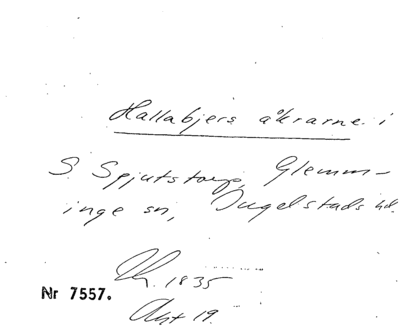 Hallabjers åkrarne i
S. Spjutstorp, Glemm-
inge sn, Ingelstads hd.
1835
Nr 7557.
Akt 19.